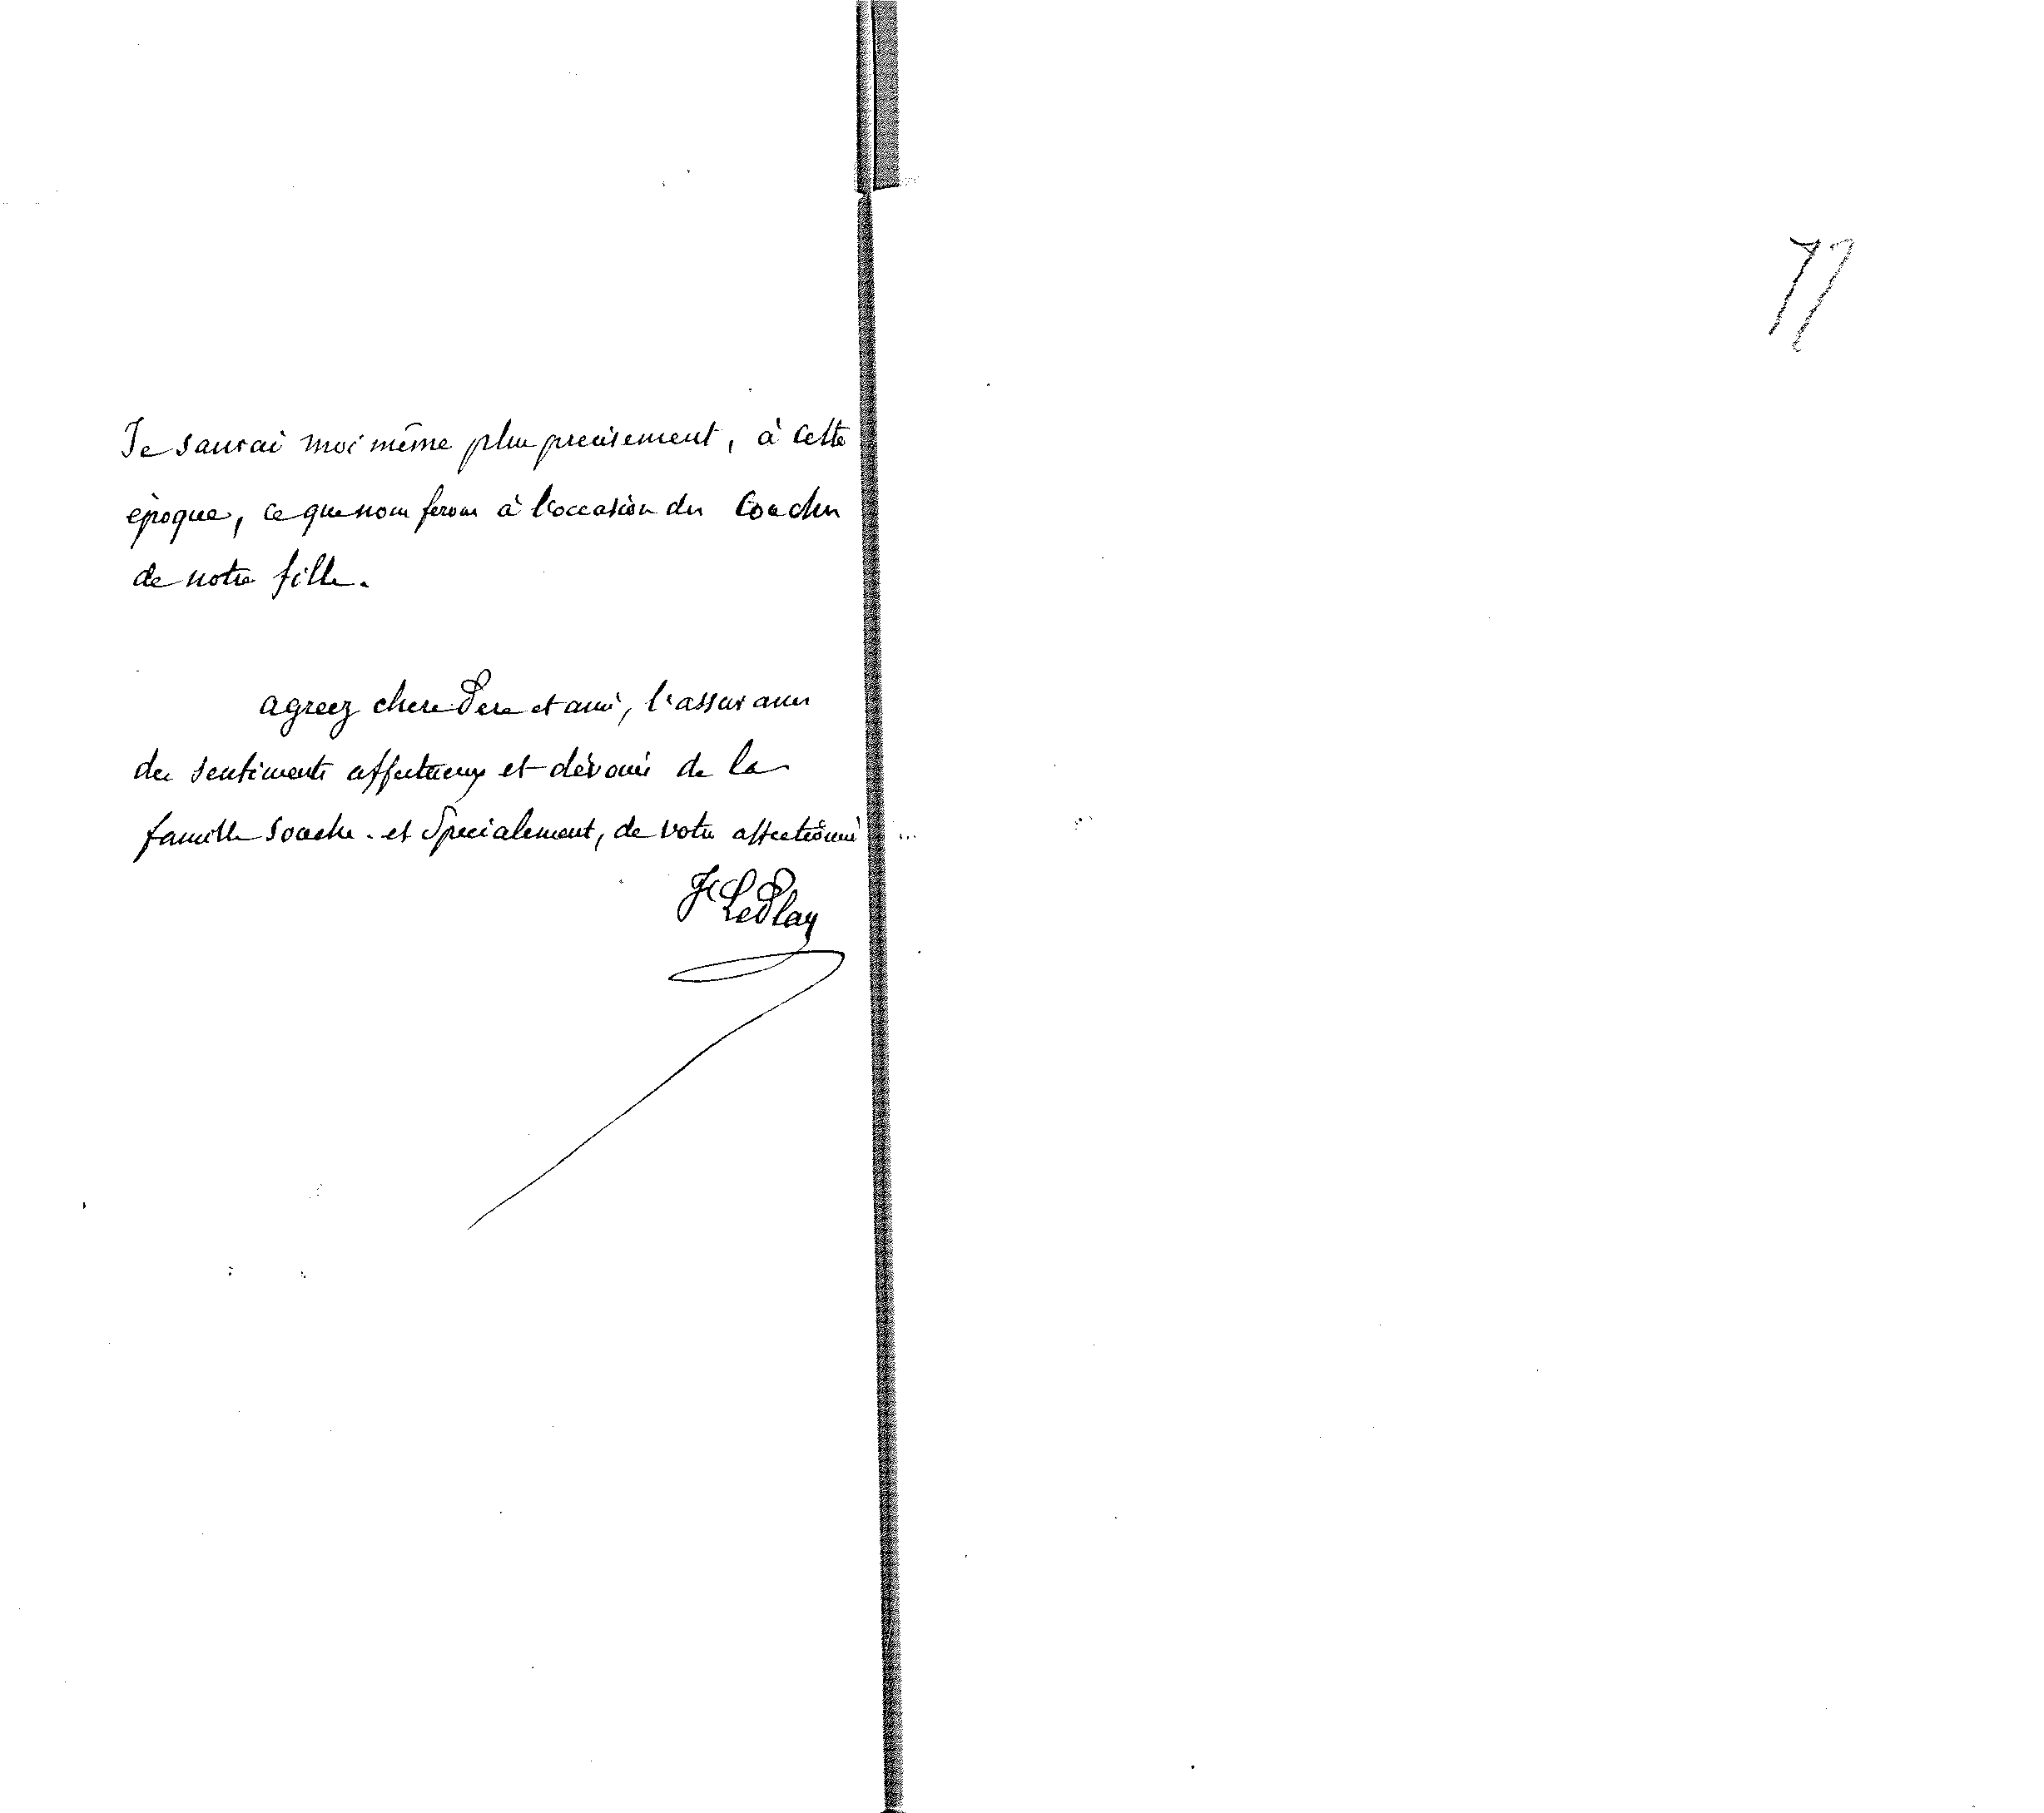 Je saurai moi même plus precisement, à cette
époque, ce que nous ferons à l'occasion des couches
de notre fille.
agreez chere Pere et ami, l'assurance
des sentiments affectueux et dévoués de la
famille souche. et Specialement, de votre affectionné
F LePlay
77